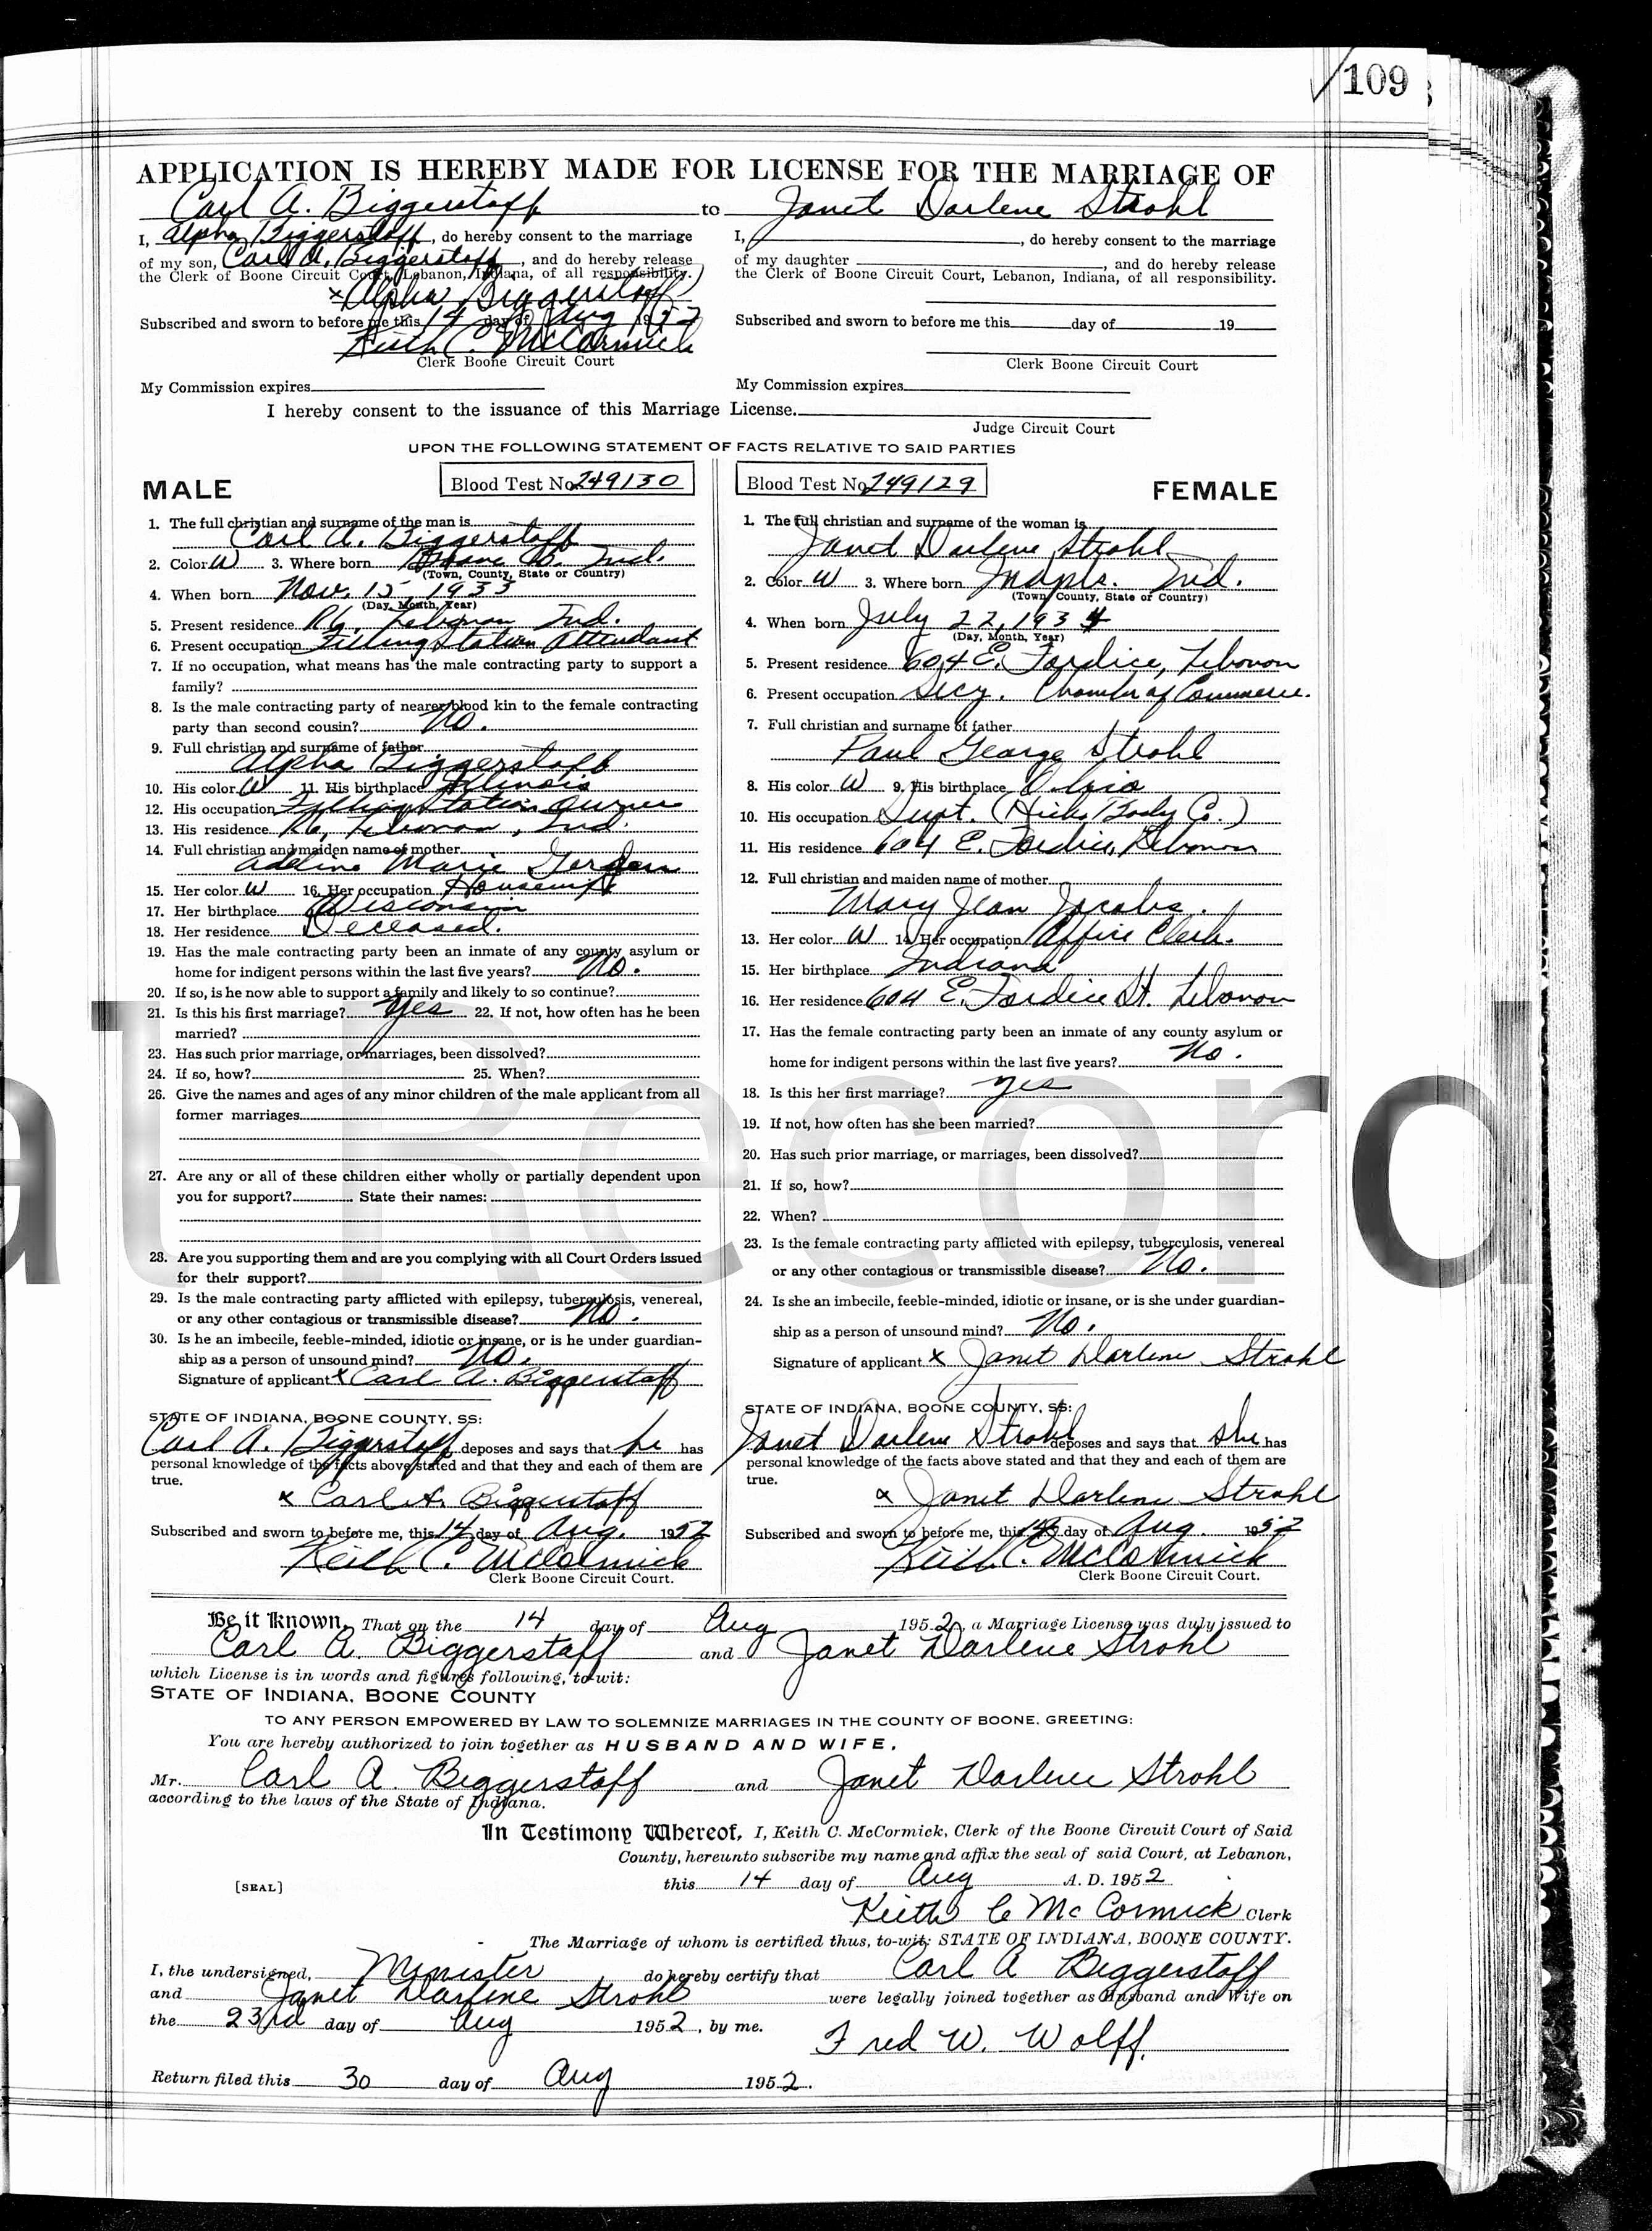 109
APPLICATION IS HEREBY MADE FOR LICENSE FOR THE MARRIAGE OF
Carl A. Biggerstaff to Janet Darlene Strohl
I, Alpha Biggerstaff, do hereby consent to the marriage
of my son, Carl A. Biggerstaff, and do hereby release
the Clerk of Boone Circuit Court, Lebanon, Indiana, of all responsibility.
x Alpha Biggerstaff
Subscribed and sworn to before me this 14 day of Aug 1952
Keith C. McCormick
Clerk Boone Circuit Court
My Commission expires
I, , do hereby consent to the marriage
of my daughter , and do hereby release
the Clerk of Boone Circuit Court, Lebanon, Indiana, of all responsibility.
Subscribed and sworn to before me this day of 19
Clerk Boone Circuit Court
My Commission expires
I hereby consent to the issuance of this Marriage License.
Judge Circuit Court
UPON THE FOLLOWING STATEMENT OF FACTS RELATIVE TO SAID PARTIES
MALE Blood Test No. 249130
1. The full christian and surname of the man is
Carl A. Biggerstaff
2. Color W 3. Where born Boone Co. Ind.
(Town, County, State or Country)
4. When born Nov. 15, 1933
(Day, Month, Year)
5. Present residence R6, Lebanon Ind.
6. Present occupation Filling Station Attendant
7. If no occupation, what means has the male contracting party to support a
family?
8. Is the male contracting party of nearer blood kin to the female contracting
party than second cousin? No.
9. Full christian and surname of father
Alpha Biggerstaff
10. His color W 11. His birthplace Illinois
12. His occupation Filling Station Owner
13. His residence R6, Lebanon, Ind.
14. Full christian and maiden name of mother
Adeline Marie
15. Her color W 16. Her occupation Housewife
17. Her birthplace Wisconsin
18. Her residence Deceased.
19. Has the male contracting party been an inmate of any county asylum or
home for indigent persons within the last five years? No.
20. If so, is he now able to support a family and likely to so continue?
21. Is this his first marriage? Yes 22. If not, how often has he been
married?
23. Has such prior marriage, or marriages, been dissolved?
24. If so, how? 25. When?
26. Give the names and ages of any minor children of the male applicant from all
former marriages
27. Are any or all of these children either wholly or partially dependent upon
you for support? State their names:
28. Are you supporting them and are you complying with all Court Orders issued
for their support?
29. Is the male contracting party afflicted with epilepsy, tuberculosis, venereal,
or any other contagious or transmissible disease? No.
30. Is he an imbecile, feeble-minded, idiotic or insane, or is he under guardian-
ship as a person of unsound mind? No.
Signature of applicant x Carl A. Biggerstaff
STATE OF INDIANA, BOONE COUNTY, SS:
Carl A. Biggerstaff deposes and says that he has
personal knowledge of the facts above stated and that they and each of them are
true.
x Carl A. Biggerstaff
Subscribed and sworn to before me, this 14 day of Aug. 1952
Keith C. McCormick
Clerk Boone Circuit Court.
Blood Test No. 249129 FEMALE
1. The full christian and surname of the woman is
Janet Darlene Strohl
2. Color W 3. Where born Indpls. Ind.
(Town, County, State or Country)
4. When born July 22, 1934
(Day, Month, Year)
5. Present residence 604 E. Fordice, Lebanon
6. Present occupation Secy. Chamber of Commerce.
7. Full christian and surname of father
Paul George Strohl
8. His color W 9. His birthplace Ohio
10. His occupation Supt. (Hicks Body Co.)
11. His residence 604 E. Fordice, Lebanon
12. Full christian and maiden name of mother
Mary Jean Jacobs.
13. Her color W 14. Her occupation Office Clerk.
15. Her birthplace Indiana
16. Her residence 604 E. Fordice St. Lebanon
17. Has the female contracting party been an inmate of any county asylum or
home for indigent persons within the last five years? No.
18. Is this her first marriage? yes
19. If not, how often has she been married?
20. Has such prior marriage, or marriages, been dissolved?
21. If so, how?
22. When?
23. Is the female contracting party afflicted with epilepsy, tuberculosis, venereal
or any other contagious or transmissible disease? No.
24. Is she an imbecile, feeble-minded, idiotic or insane, or is she under guardian-
ship as a person of unsound mind? No.
Signature of applicant x Janet Darlene Strohl
STATE OF INDIANA, BOONE COUNTY, SS:
Janet Darlene Strohl deposes and says that she has
personal knowledge of the facts above stated and that they and each of them are
true.
x Janet Darlene Strohl
Subscribed and sworn to before me, this 14 day of Aug. 1952
Keith C. McCormick
Clerk Boone Circuit Court.
al Record
Be it Known, That on the 14 day of Aug 1952, a Marriage License was duly issued to
Carl A. Biggerstaff and Janet Darlene Strohl
which License is in words and figures following, to-wit:
STATE OF INDIANA, BOONE COUNTY
TO ANY PERSON EMPOWERED BY LAW TO SOLEMNIZE MARRIAGES IN THE COUNTY OF BOONE. GREETING:
You are hereby authorized to join together as HUSBAND AND WIFE,
Mr. Carl A. Biggerstaff and Janet Darlene Strohl
according to the laws of the State of Indiana.
In Testimony Whereof, I, Keith C. McCormick, Clerk of the Boone Circuit Court of Said
County, hereunto subscribe my name and affix the seal of said Court, at Lebanon,
[SEAL] this 14 day of Aug A. D. 1952
Keith C McCormick Clerk
The Marriage of whom is certified thus, to-wit: STATE OF INDIANA, BOONE COUNTY.
I, the undersigned, Minister do hereby certify that Carl A Biggerstaff
and Janet Darlene Strohl were legally joined together as Husband and Wife on
the 23rd day of Aug 1952, by me. Fred W. Wolff.
Return filed this 30 day of Aug 1952.